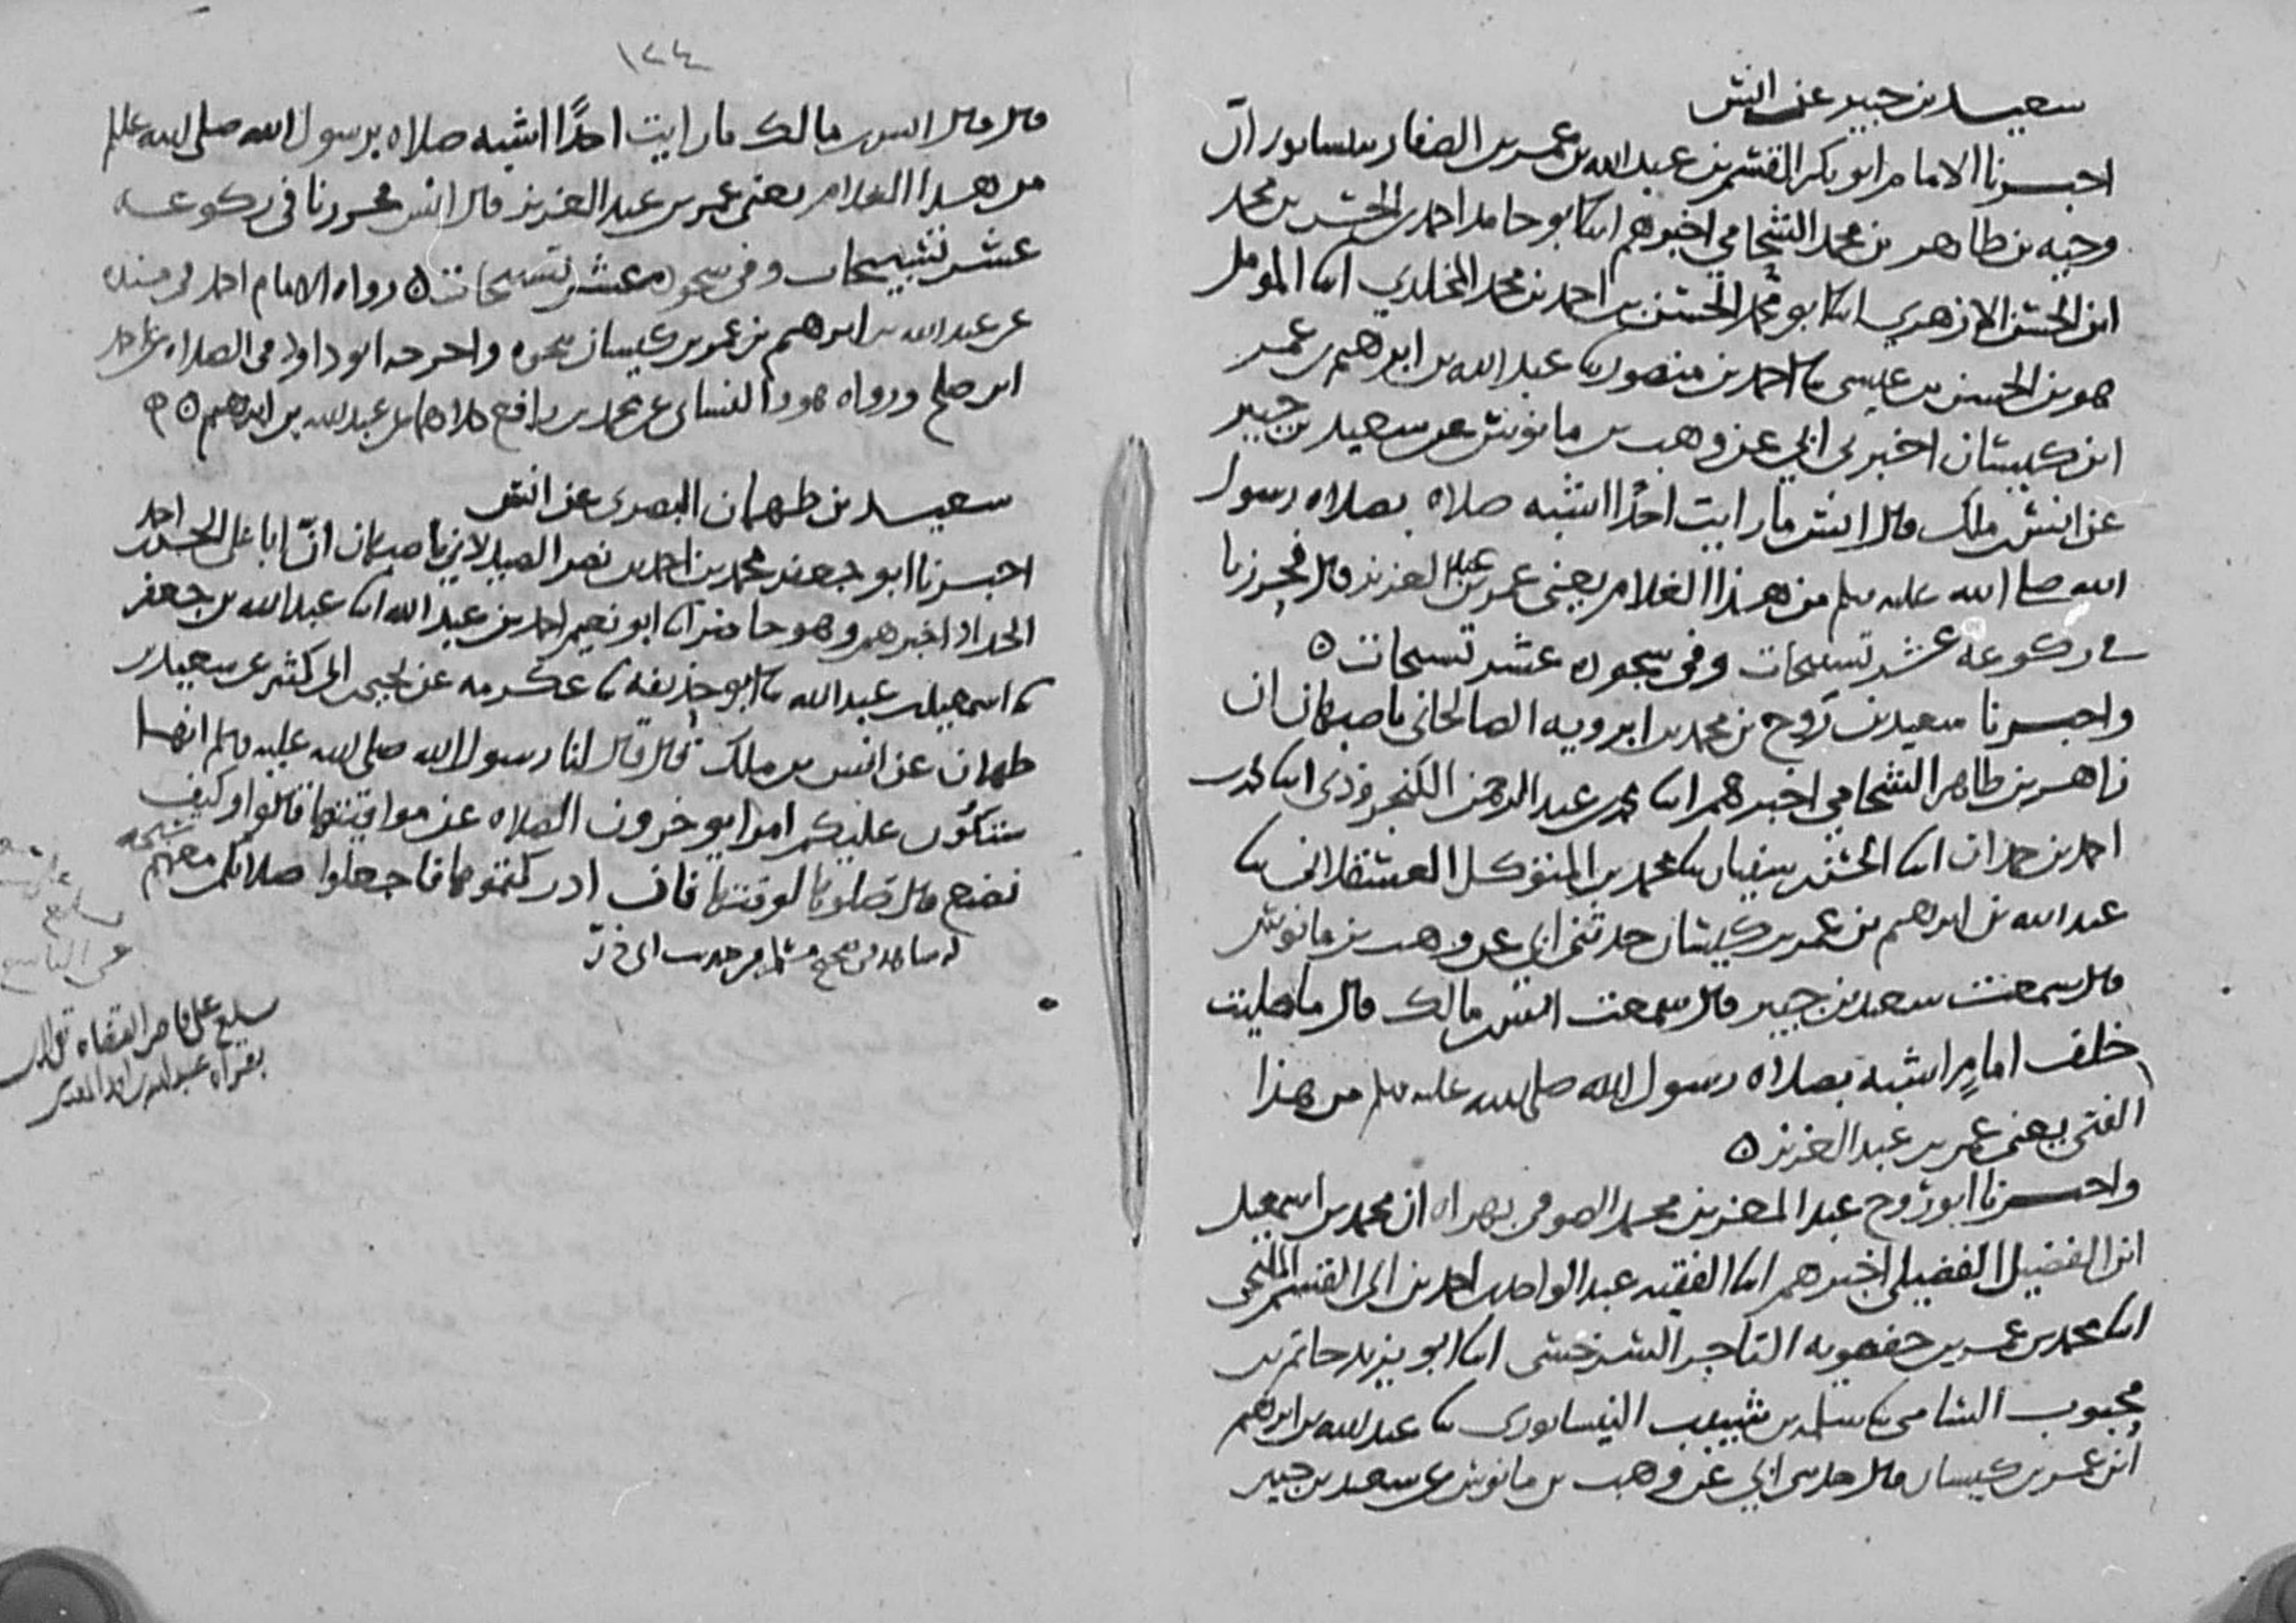 سعيد بن جبير عن انس
اخبرنا الامام ابو بكر القسم بن عبد الله بن عمر بن الصفار بنيسابور ان
وجيه بن طاهر بن محمد الشحامي اخبرهم ابنا ابو حامد احمد بن الحسن بن محمد
ابن الحسن الازهري ابنا ابو محمد الحسن بن احمد بن محمد المخلدي ابنا المومل
هو بن الحسن بن عيسى ثنا احمد بن منصور ثنا عبد الله بن ابرهيم بن عمر
ابن كيسان اخبرني ابي عن وهب بن مانوس عن سعيد بن جبير
عن انس بن ملك قال انس ما رايت احدًا اشبه صلاه بصلاه رسول
الله صلى الله عليه وسلم من هذا الغلام يعني عمر بن عبد العزيز قال فحزرنا
في ركوعه عشر تسبيحات وفي سجوده عشر تسبيحات ٥
واخبرنا سعيد بن روح بن محمد بن ابرويه الصالحاني باصبهان ان
زاهر بن طاهر الشحامي اخبرهم ابنا محمد بن عبد الرحمن الكنجروذي ابنا محمد بن
احمد بن حمدان ابنا الحسن بن سفيان ثنا محمد بن المتوكل العسقلاني ثنا
عبد الله بن ابرهيم بن عمر بن كيسان حدثني ابي عن وهب بن مانوس
قال سمعت سعيد بن جبير قال سمعت انس بن مالك قال ما صليت
خلف امامٍ اشبه بصلاه رسول الله صلى الله عليه وسلم من هذا
الفتى يعني عمر بن عبد العزيز ٥
واخبرنا ابو روح عبد المعز بن محمد الصوفي بهراه ان محمد بن اسمعيل
ابن الفضيل الفضيلي اخبرهم ابنا الفقيه عبد الواحد بن احمد بن ابي القسم المليحي
ابنا محمد بن عمر بن حفصويه التاجر السرخسي ابنا ابو يزيد حاتم بن
محبوب الشامي ثنا سلمه بن شبيب النيسابوري ثنا عبد الله بن ابرهيم
ابن عمر بن كيسان قال حدثني ابي عن وهب بن مانوس عن سعيد بن جبير
١٢٤
قال قال انس بن مالك ما رايت احدًا اشبه صلاه برسول الله صلى الله عليه وسلم
من هذا الغلام يعني عمر بن عبد العزيز قال انس فحزرنا في ركوعه
عشر تسبيحات وفي سجوده عشر تسبيحات ٥ رواه الامام احمد في مسنده
عن عبد الله بن ابرهيم بن عمر بن كيسان بنحوه واخرجه ابو داود في الصلاه عن احمد
ابن صلح ورواه هو والنسائي عن محمد بن رافع كلاهما عن عبد الله بن ابرهيم ٥
سعيد بن طهمان البصري عن انس
اخبرنا ابو جعفر محمد بن احمد بن نصر الصيدلاني باصبهان انّ ابا علي الحسن بن احمد
الحداد اخبرهم وهو حاضر ابنا ابو نعيم احمد بن عبد الله ابنا عبد الله بن جعفر
ثنا اسمعيل بن عبد الله ثنا ابو حذيفه ثنا عكرمه عن يحيى بن ابي كثير عن سعيد بن
طهمان عن انس بن ملك قال قال لنا رسول الله صلى الله عليه وسلم انها
ستكون عليكم امرا يوخرون الصلاه عن مواقيتها قالوا وكيف
نصنع قال صلوها لوقتها فان ادركتموها فاجعلوا صلاتكم معهم سبحه
له شاهد في صحيح مسلم من حديث ابي ذرّ